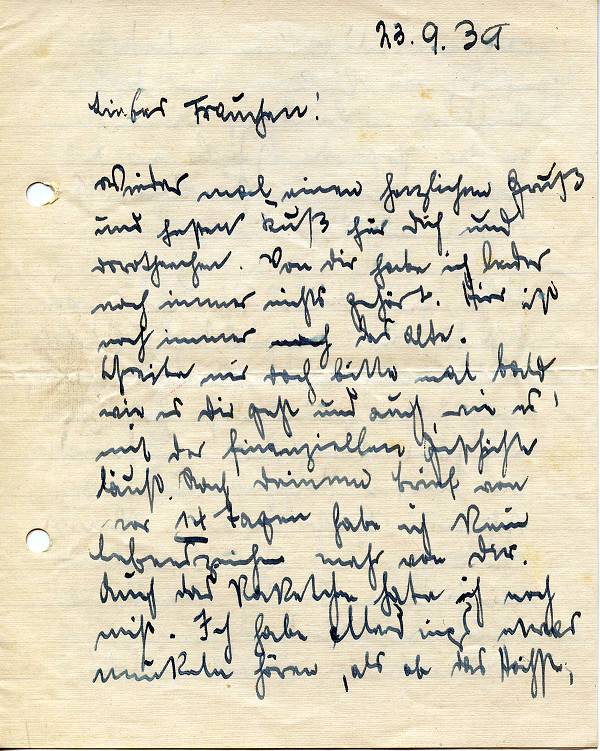 23.9.39
Liebes Frauchen!
Wieder mal einen herzlichen Gruß
und festen Kuß für Dich und
Dorotheechen. Von dir habe ich leider
noch immer nichts gehört. Hier ist
noch immer noch das alte.
Schreibe mir doch bitte mal bald
wie es Dir geht und auch, wie es
mit der finanziellen Geschichte
läuft. Nach Deinem Brief von
vor 14 Tagen habe ich kein
Lebenszeichen mehr von Dir.
Auch das Paketchen habe ich noch
nicht. Ich habe allerdings etwas
munkeln hören, als ob das